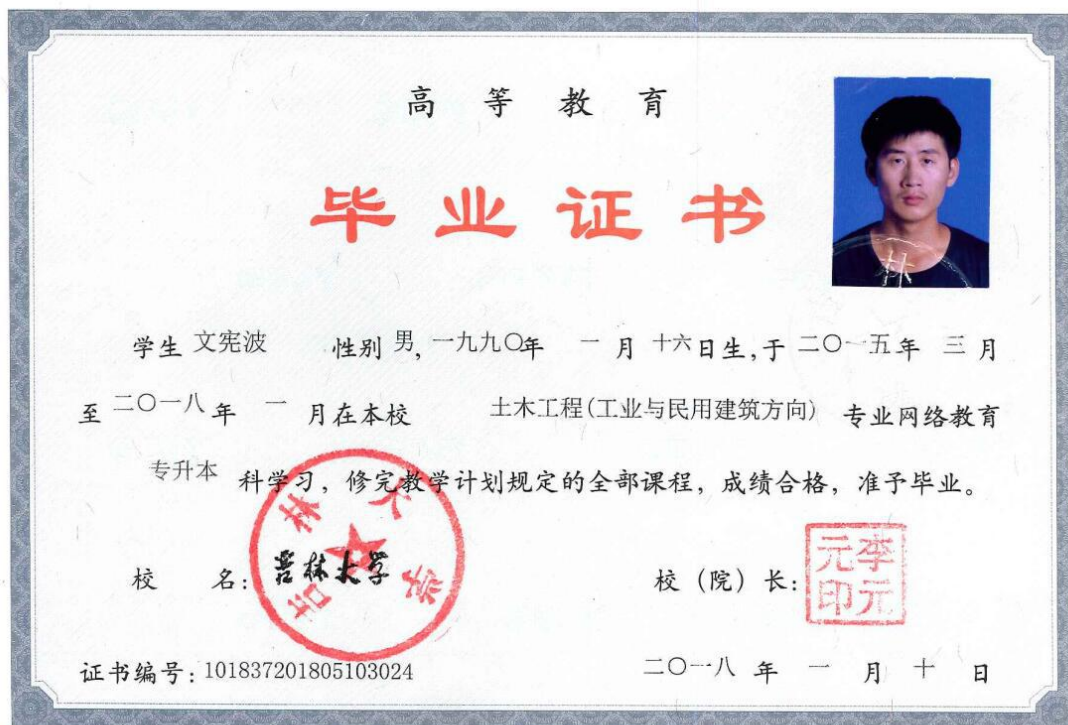 高等教育
毕业证书
学生 文宪波 性别 男, 一九九〇年 一 月 十六日生,于 二〇一五年 三 月
至 二〇一八 年 一 月在本校 土木工程(工业与民用建筑方向) 专业网络教育
专升本 科学习，修完教学计划规定的全部课程，成绩合格，准予毕业。
校 名: 吉林大学
吉林大学
校（院）长:
李元元印
证书编号: 101837201805103024
二〇一八 年 一 月 十 日
林